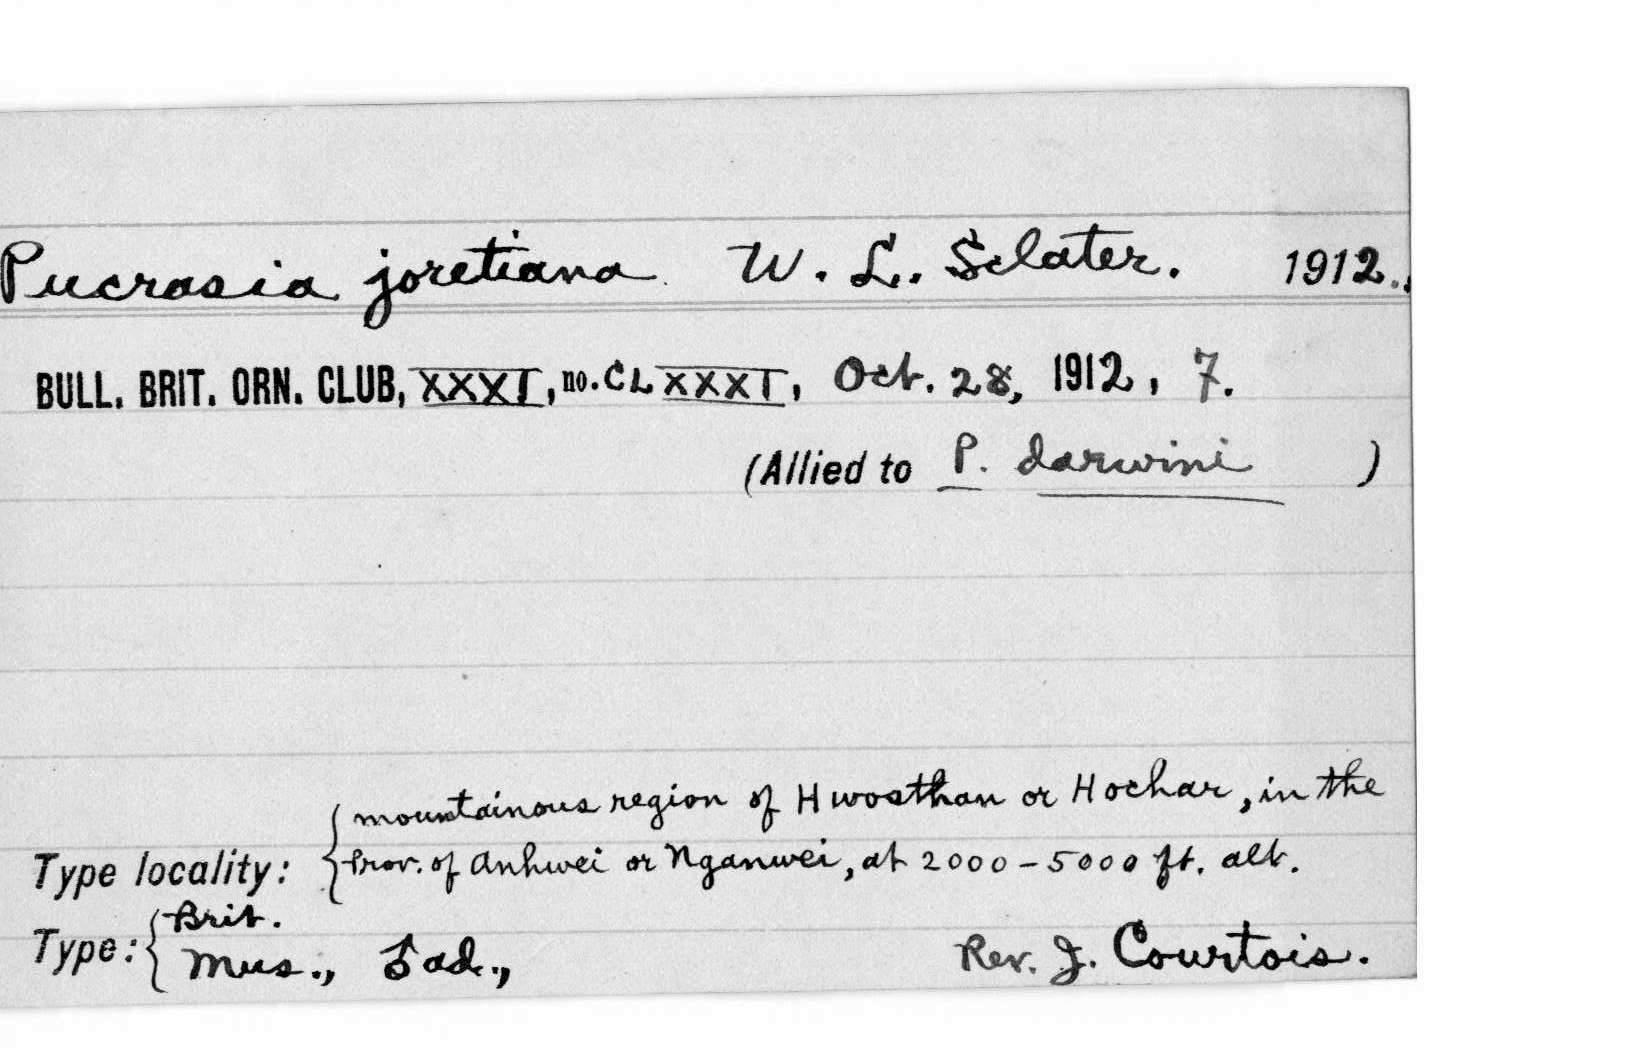 Pucrasia joretiana W. L. Sclater. 1912.
BULL. BRIT. ORN. CLUB, XXXI, no. CLXXXI, Oct. 28, 1912, 7.
(Allied to P. darwini )
mountainous region of Hwosthan or Hochar, in the
Type locality: { Prov. of Anhwei or Nganwei, at 2000-5000 ft. alt.
Brit.
Type: { Mus., ♂ ad., Rev. J. Courtois.